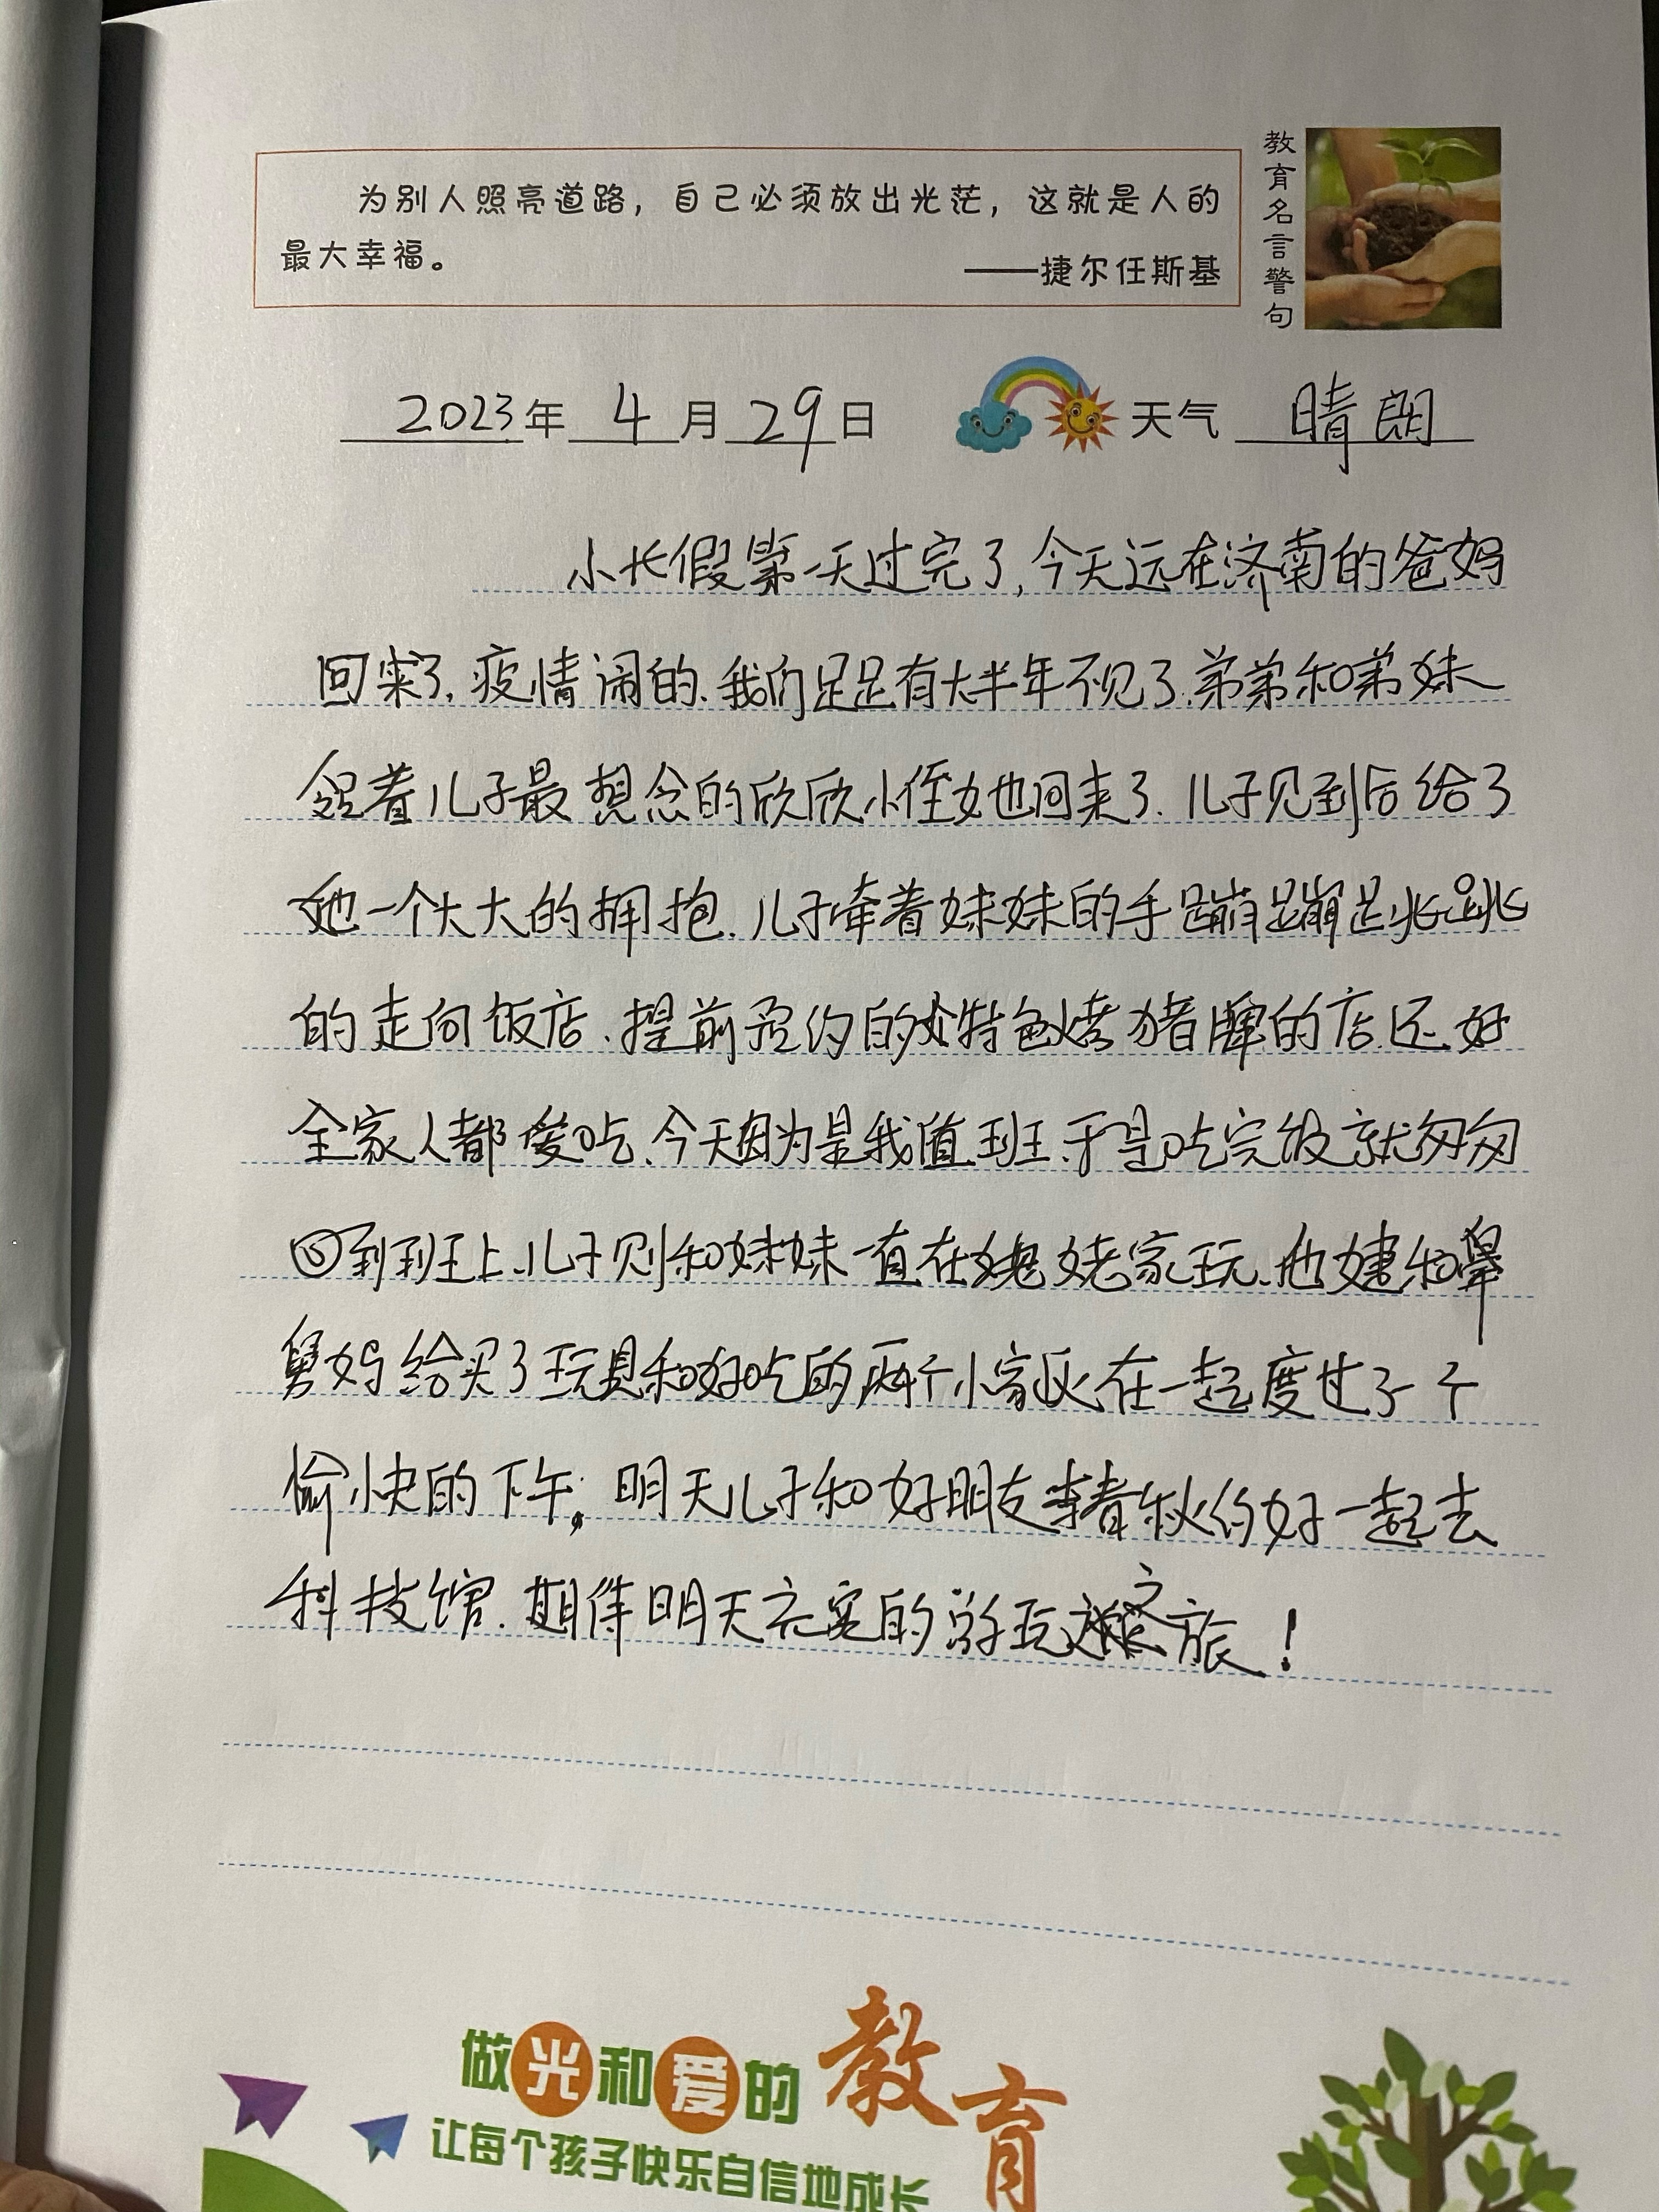 为别人照亮道路，自己必须放出光茫，这就是人的
最大幸福。
——捷尔任斯基
教育名言警句
2023年 4月 29日 天气 晴朗
小长假第一天过完了,今天远在济南的爸妈
回来了.疫情闹的.我们足足有大半年不见了.弟弟和弟妹
领着儿子最想念的欣欣小侄女也回来了.儿子见到后给了
她一个大大的拥抱.儿子牵着妹妹的手蹦蹦跳跳
的走向饭店.提前预约的特色烤猪蹄的店.还好
全家人都爱吃.今天因为是我值班.于是吃完饭就匆匆
回到班上.儿子则和妹妹一直在姥姥家玩.他和舅
舅妈给买了玩具和好吃的.两个小家伙在一起度过了一个
愉快的下午;明天儿子和好朋友李春秋约好一起去
科技馆.期待明天充实的游玩之旅!
做光和爱的教育
让每个孩子快乐自信地成长